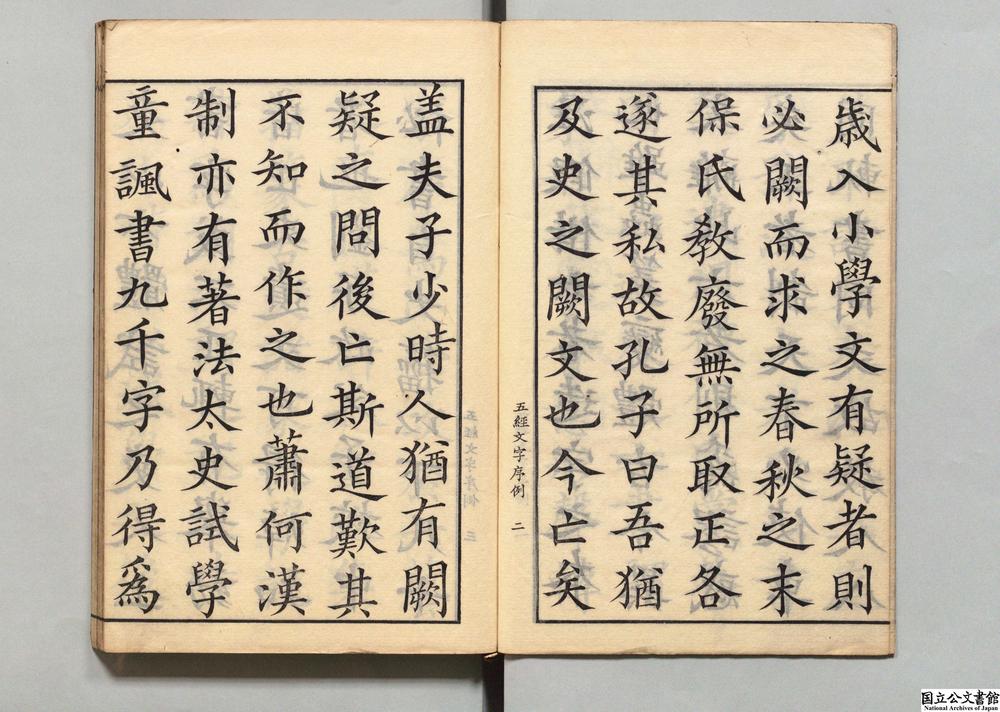 歳入小學文有疑者則
必闕而求之春秋之末
保氏敎廢無所取正各
遂其私故孔子曰吾猶
及史之闕文也今亡矣
五經文字序例 二
盖夫子少時人猶有闕
疑之問後亡斯道歎其
不知而作之也蕭何漢
制亦有著法太史試學
童諷書九千字乃得爲
国立公文書館
National Archives of Japan